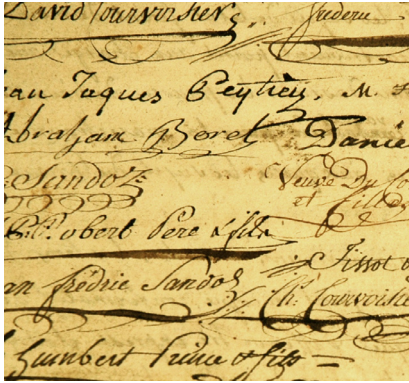 David Courvoisier frederic
Jean Jaques Peytieu, M.
Abraham Beret Danie
Sandoz Veuve Du Co
et fils
Robert Pere & fils
Tissot
an frédric Sandoz Ch: Courvoisie
Humbert Prince & fils